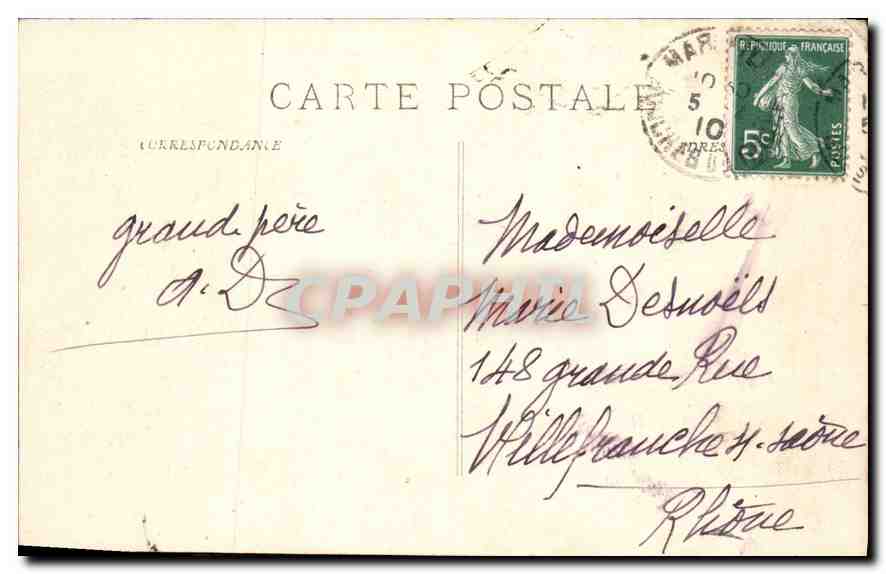 CARTE POSTALE
CORRESPONDANCE
REPUBLIQUE FRANÇAISE
5c
POSTES
MAR
10
5
10
grand. père
a. D
CPAPHIL
Mademoiselle
Marie Desnoëls
148 grande Rue
Villefranche s. saône
Rhône